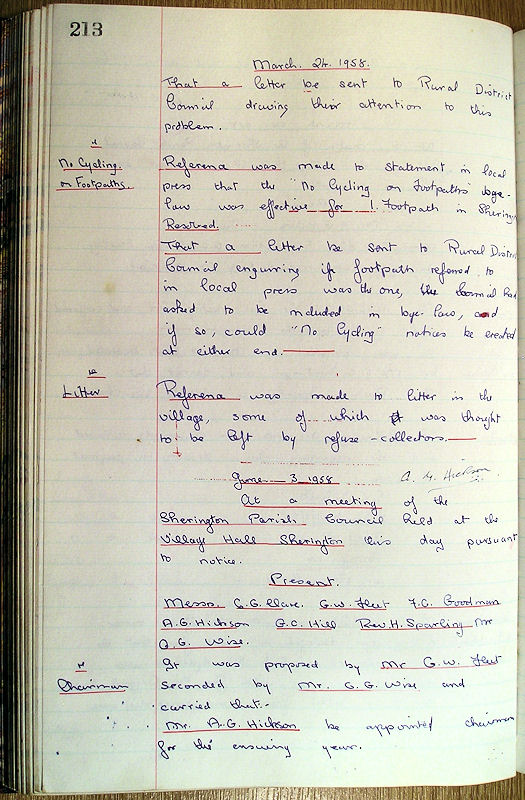 213
March. 24. 1958.
That a letter be sent to Rural District
Council drawing their attention to this
problem.
No Cycling.
on Footpaths.
Reference was made to statement in local
press that the "No Cycling on Footpaths" bye-
law was effective for 1. Footpath in Sherington
Resolved.
That a letter be sent to Rural District
Council enquiring if footpath referred to
in local press was the one, the Council had
asked to be included in bye-law, and
if so, could "No Cycling" notices be erected
at either end.
Litter
Reference was made to litter in the
village, some of which was thought
to be left by refuse-collectors.
June 3 1958 A. G. Hickson.
At a meeting of the
Sherington Parish Council held at the
Village Hall Sherington this day pursuant
to notice.
Present.
Messrs. G.G. Clare. G.W. Fleet F.C. Goodman
A.G. Hickson G.C. Hill Rev. H. Sparling Mr
G.G. Wise.
Chairman
It was proposed by Mr G.W. Fleet
seconded by Mr. G.G. Wise and
carried that:-
Mr. A.G. Hickson be appointed chairman
for the ensuing year.